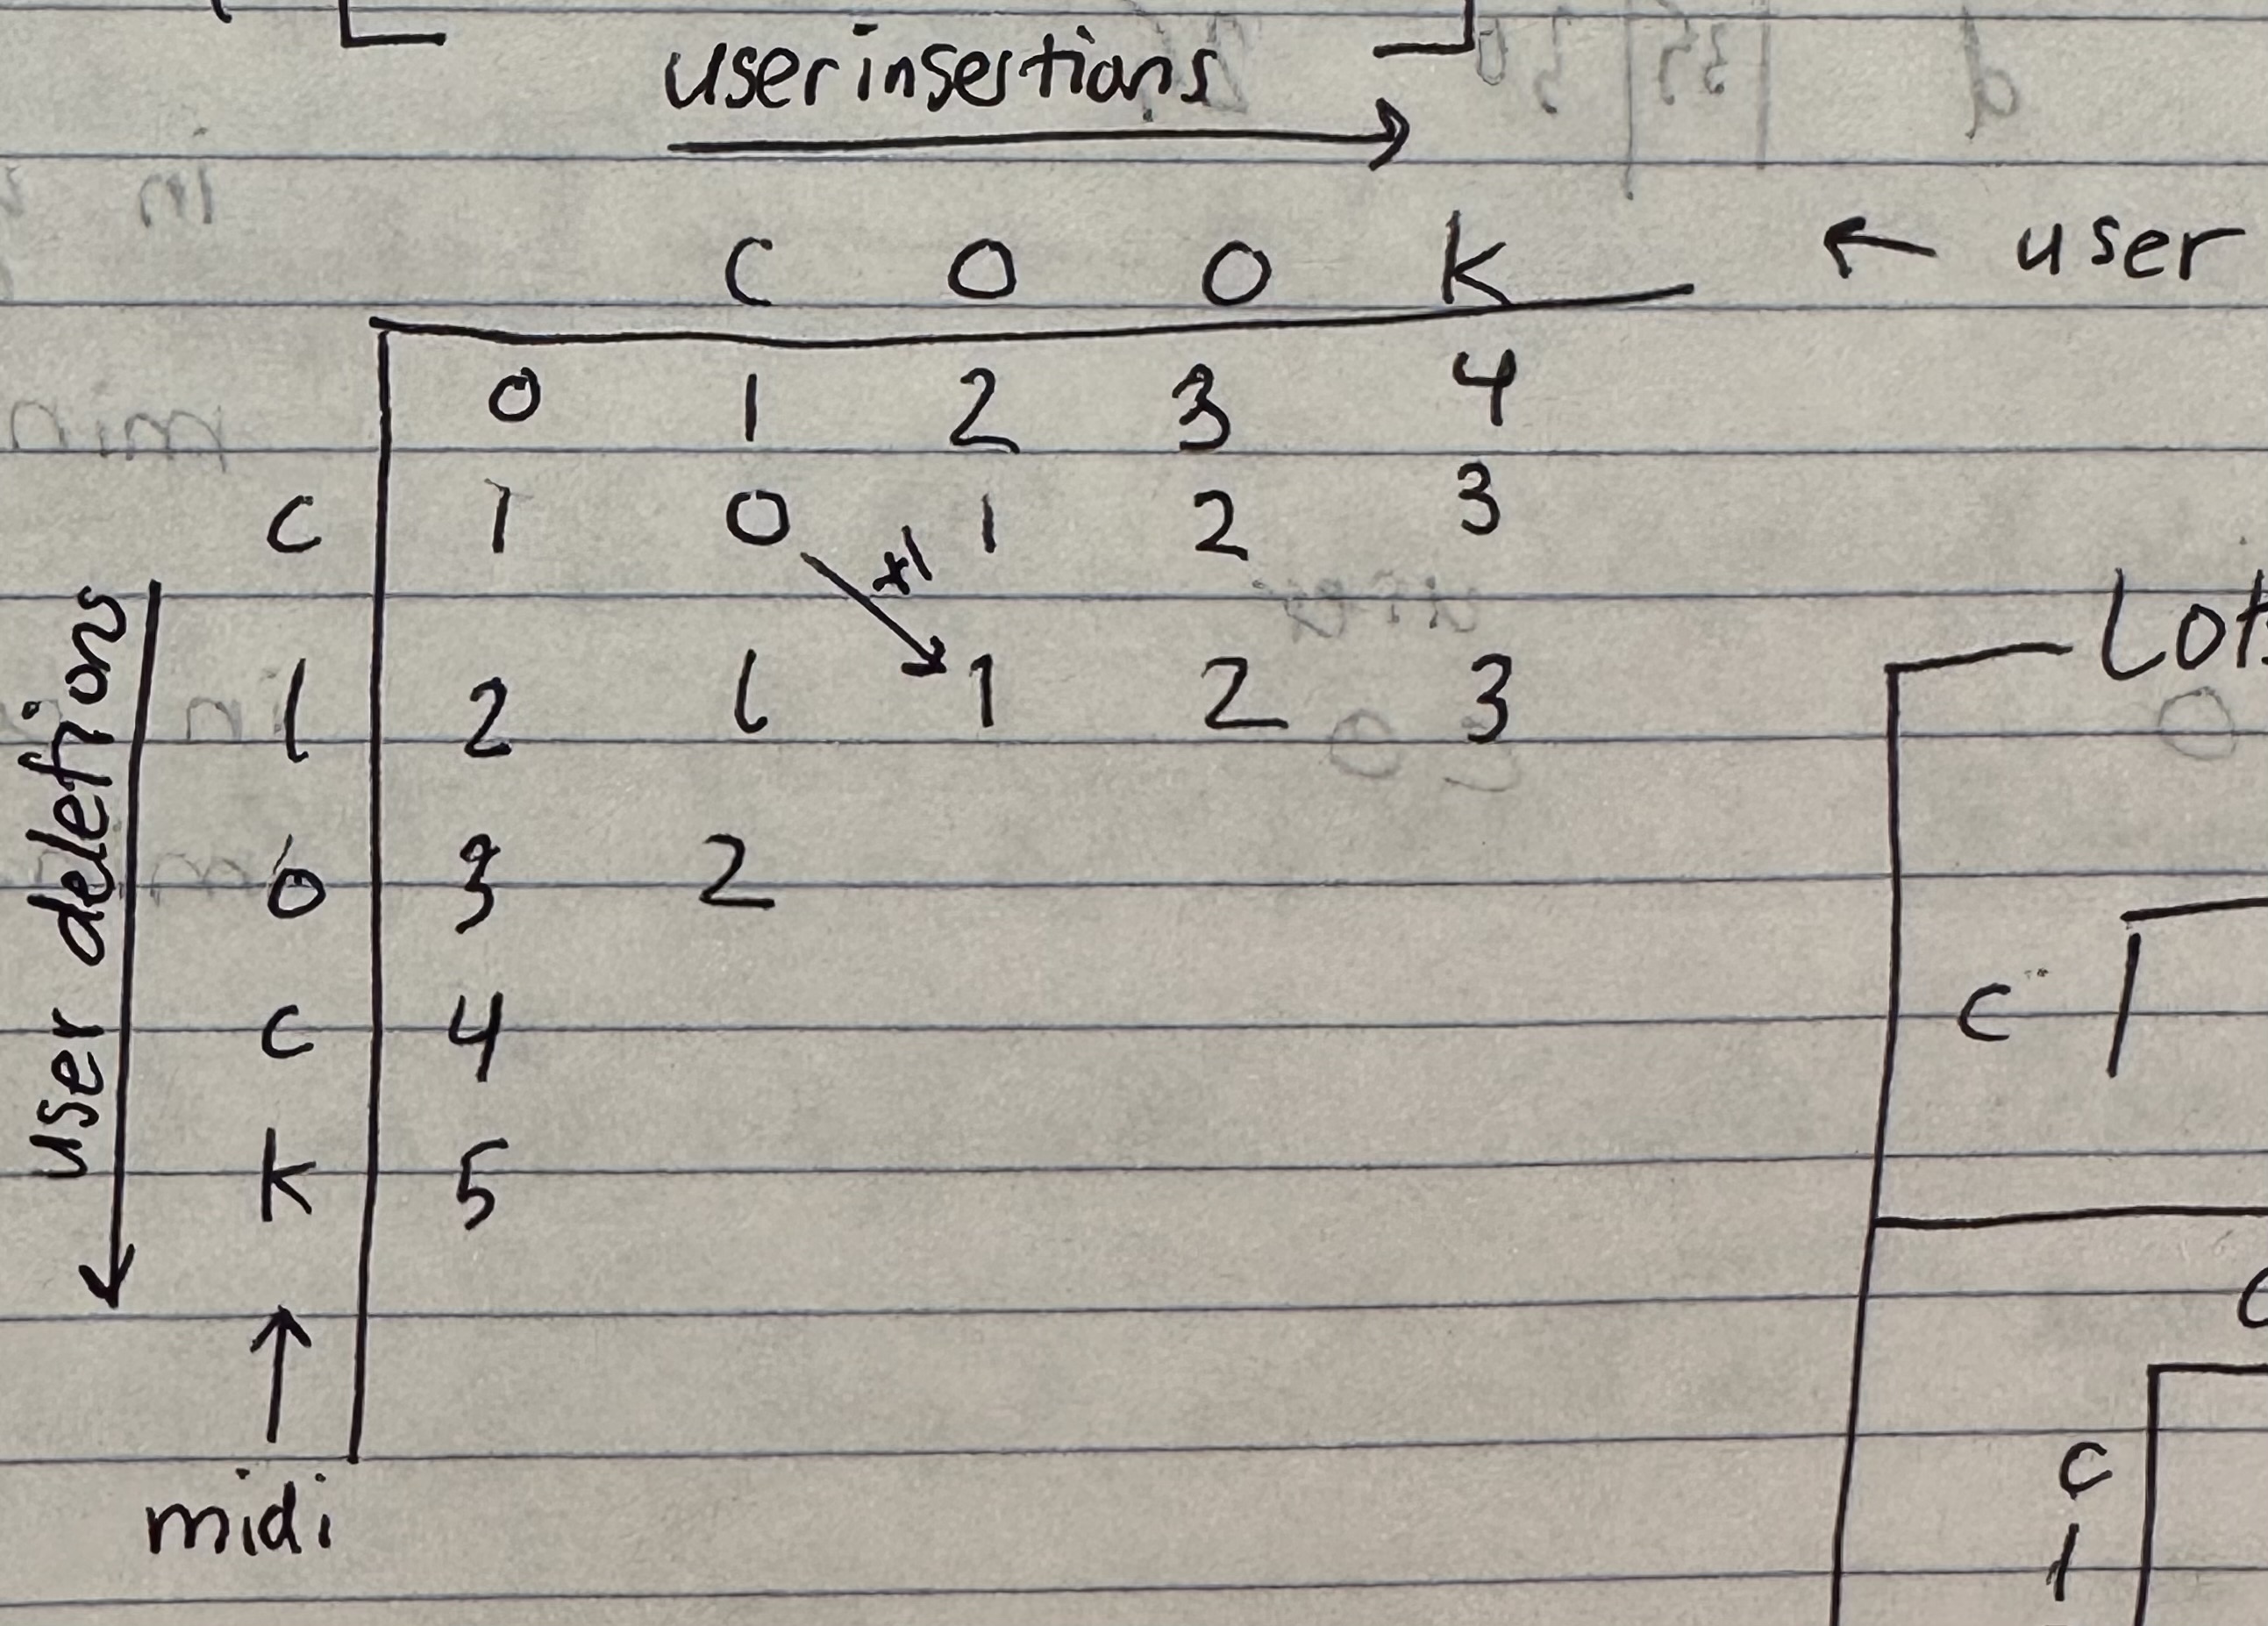 user insertions
C O O K ← user
0 1 2 3 4
C 1 0 1 2 3
+1
l 2 1 1 2 3
O 3 2
C 4
K 5
user deletions
midi
C
C
l